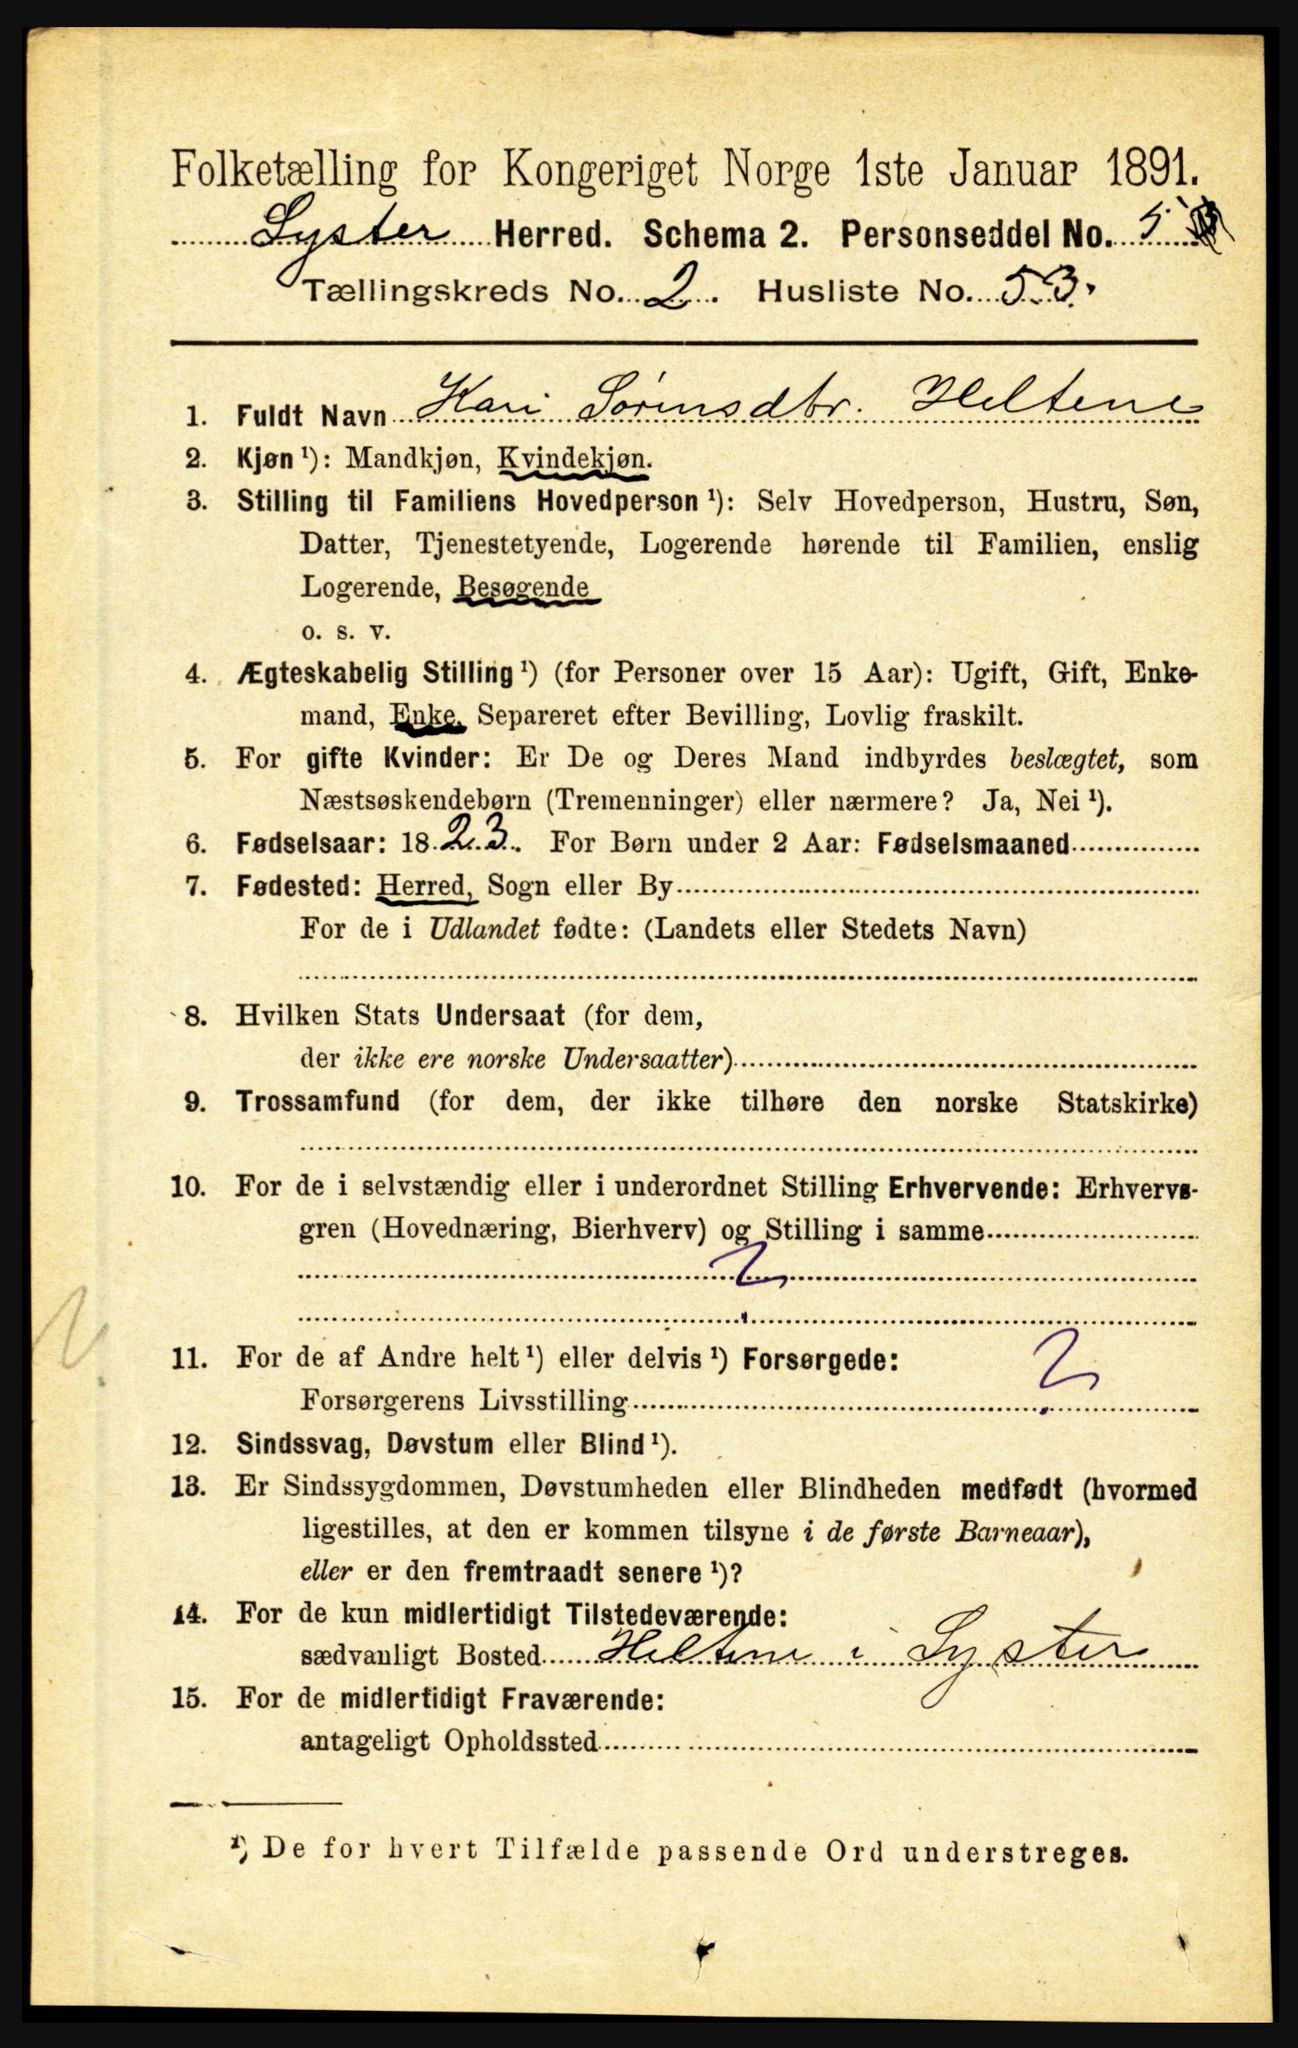 Folketælling for Kongeriget Norge 1ste Januar 1891.
Lyster Herred. Schema 2. Personseddel No. 5
Tællingskreds No. 2. Husliste No. 53.
1. Fuldt Navn Kari Sørensdtr. Heltene
2. Kjøn ¹): Mandkjøn, Kvindekjøn.
3. Stilling til Familiens Hovedperson ¹): Selv Hovedperson, Hustru, Søn,
Datter, Tjenestetyende, Logerende hørende til Familien, enslig
Logerende, Besøgende
o. s. v.
4. Ægteskabelig Stilling ¹) (for Personer over 15 Aar): Ugift, Gift, Enke-
mand, Enke, Separeret efter Bevilling, Lovlig fraskilt.
5. For gifte Kvinder: Er De og Deres Mand indbyrdes beslægtet, som
Næstsøskendebørn (Tremenninger) eller nærmere? Ja, Nei ¹).
6. Fødselsaar: 1823. For Børn under 2 Aar: Fødselsmaaned
7. Fødested: Herred, Sogn eller By
For de i Udlandet fødte: (Landets eller Stedets Navn)
8. Hvilken Stats Undersaat (for dem,
der ikke ere norske Undersaatter)
9. Trossamfund (for dem, der ikke tilhøre den norske Statskirke)
10. For de i selvstændig eller i underordnet Stilling Erhvervende: Erhvervs-
gren (Hovednæring, Bierhverv) og Stilling i samme
?
11. For de af Andre helt ¹) eller delvis ¹) Forsørgede:
Forsørgerens Livsstilling ?
12. Sindssvag, Døvstum eller Blind ¹).
13. Er Sindssygdommen, Døvstumheden eller Blindheden medfødt (hvormed
ligestilles, at den er kommen tilsyne i de første Barneaar),
eller er den fremtraadt senere ¹)?
14. For de kun midlertidigt Tilstedeværende:
sædvanligt Bosted Heltene i Lyster
15. For de midlertidigt Fraværende:
antageligt Opholdssted
¹) De for hvert Tilfælde passende Ord understreges.